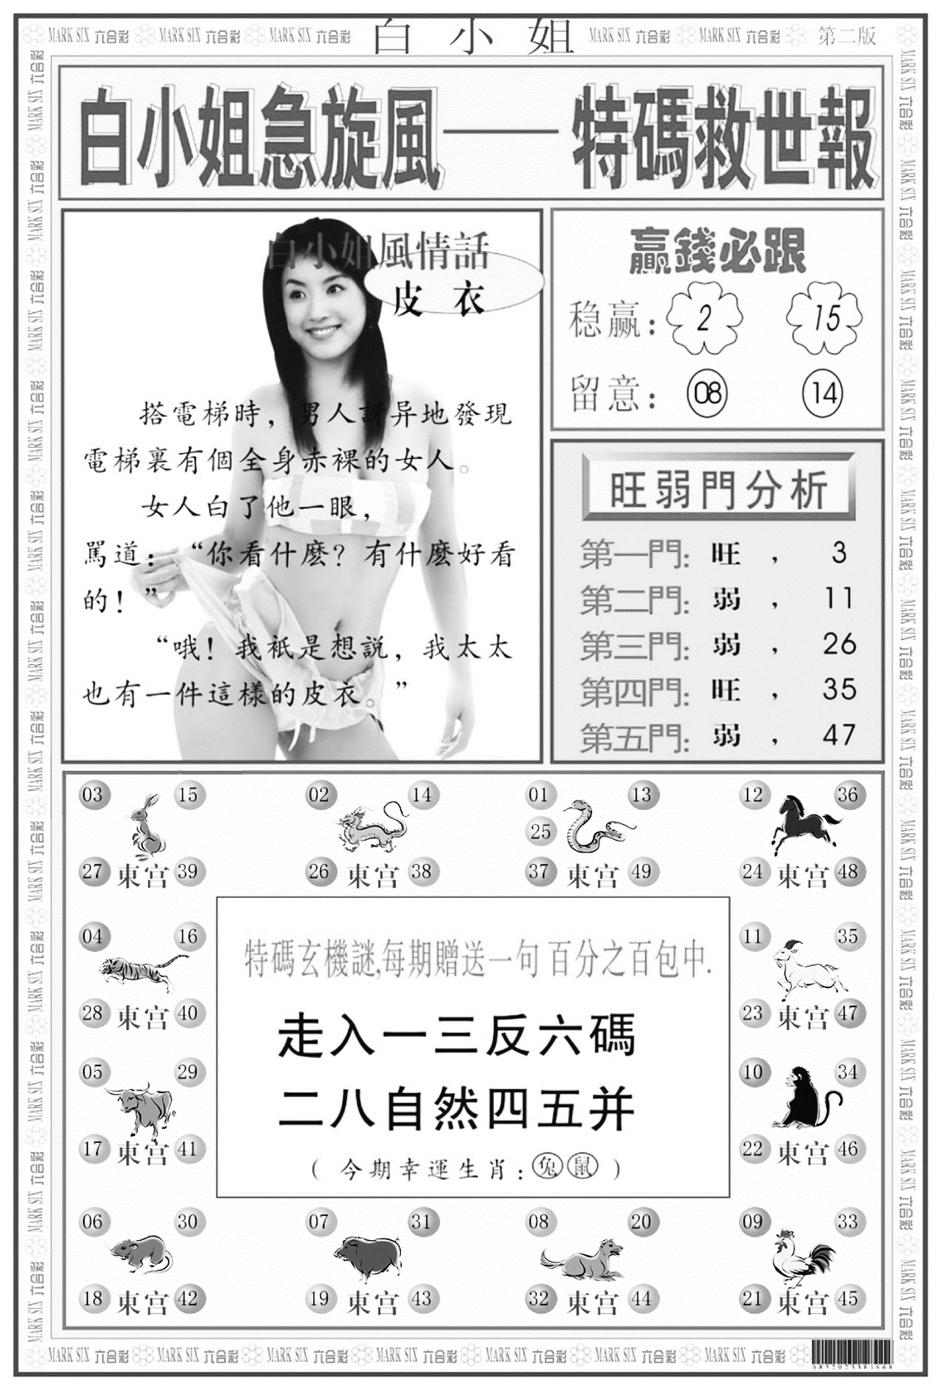 MARK SIX 六合彩 MARK SIX 六合彩 MARK SIX 六合彩 白小姐 MARK SIX 六合彩 MARK SIX 六合彩 第二版
白小姐急旋風——特碼救世報
白小姐風情話
皮衣
搭電梯時，男人訝异地發現
電梯裏有個全身赤裸的女人。
女人白了他一眼，
駡道：“你看什麽？有什麽好看
的！”
“哦！我衹是想説，我太太
也有一件這樣的皮衣。”
贏錢必跟
稳赢： 2 15
留意： 08 14
旺弱門分析
第一門：旺，3
第二門：弱，11
第三門：弱，26
第四門：旺，35
第五門：弱，47
03 15
27 東宫 39
02 14
26 東宫 38
01 13
25
37 東宫 49
12 36
24 東宫 48
04 16
28 東宫 40
11 35
23 東宫 47
05 29
17 東宫 41
10 34
22 東宫 46
特碼玄機謎,每期贈送一句百分之百包中.
走入一三反六碼
二八自然四五并
（今期幸運生肖：兔鼠）
06 30
18 東宫 42
07 31
19 東宫 43
08 20
32 東宫 44
09 33
21 東宫 45
MARK SIX 六合彩 MARK SIX 六合彩 MARK SIX 六合彩 MARK SIX 六合彩 MARK SIX 六合彩 MARK SIX 六合彩 MARK SIX 六合彩